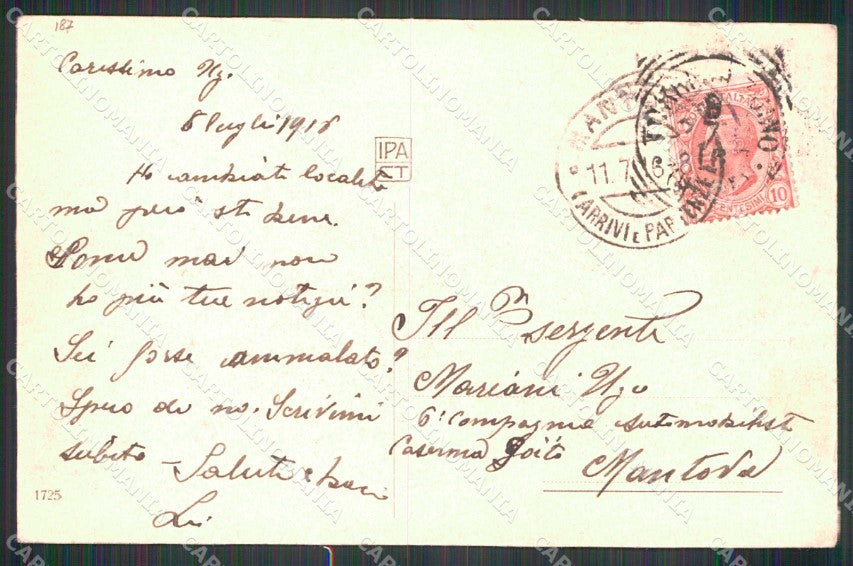 187
Carissimo Ugo.
8 luglio 1918
Ho cambiato località
ma però sto bene.
Come mai non
ho più tue notizie?
Sei forse ammalato?
Spero di no. Scrivimi
subito
Saluti e baci
IPA
CT
11.7
ARRIVI E PAR
10
Ill
sergente
Mariani Ugo
6ª Compagnia automobilisti
Caserma Goito
Mantova
1725
CARTOLINOMANIA